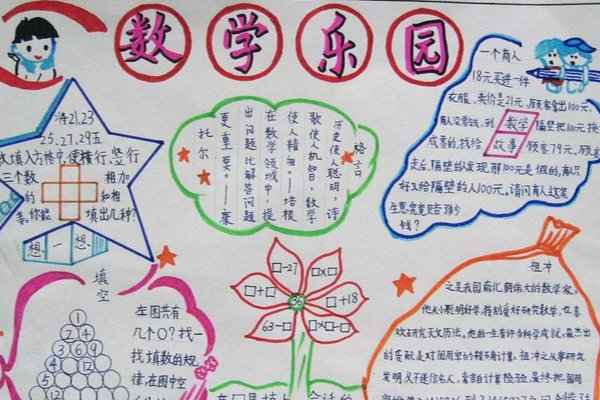 数学乐园
将21.23
25.27.29五
填入方格中,使横行,竖行
三个数 相加
的 和相
等,你能 填出几种?
想一想
历史使人聪明,诗
歌使人机智,数学
使人精细。——培根
在数学领域中,提
出问题比解答问题
更重要。——康
托尔
格言
一个商人
18元买进一件
衣服,卖价是21元,顾客拿出100元,
商人没零钱,到 隔壁把100元换
成零的,找给 顾客79元,顾客
走后,隔壁的人发现那100元是假的,商人只
好又给隔壁的人100元。请问商人这笔
生意究竟赔多少
钱?
数学
故事
填空
左图共有
几个○?找一
找填数的规
律,在图中空
1
2 4
6 12 9
□-27
□×□
□+□
56
□+18
63-□
□×□-□
祖冲
之是我国南北朝伟大的数学家。
他从小聪明好学,特别爱好研究数学,也喜
欢研究天文历法。他的一生有许多科学成就,最杰出
的贡献是对圆周率的精确计算。祖冲之从事研究
发明,从不迷信名人,看亲自计算检验,最终把圆周